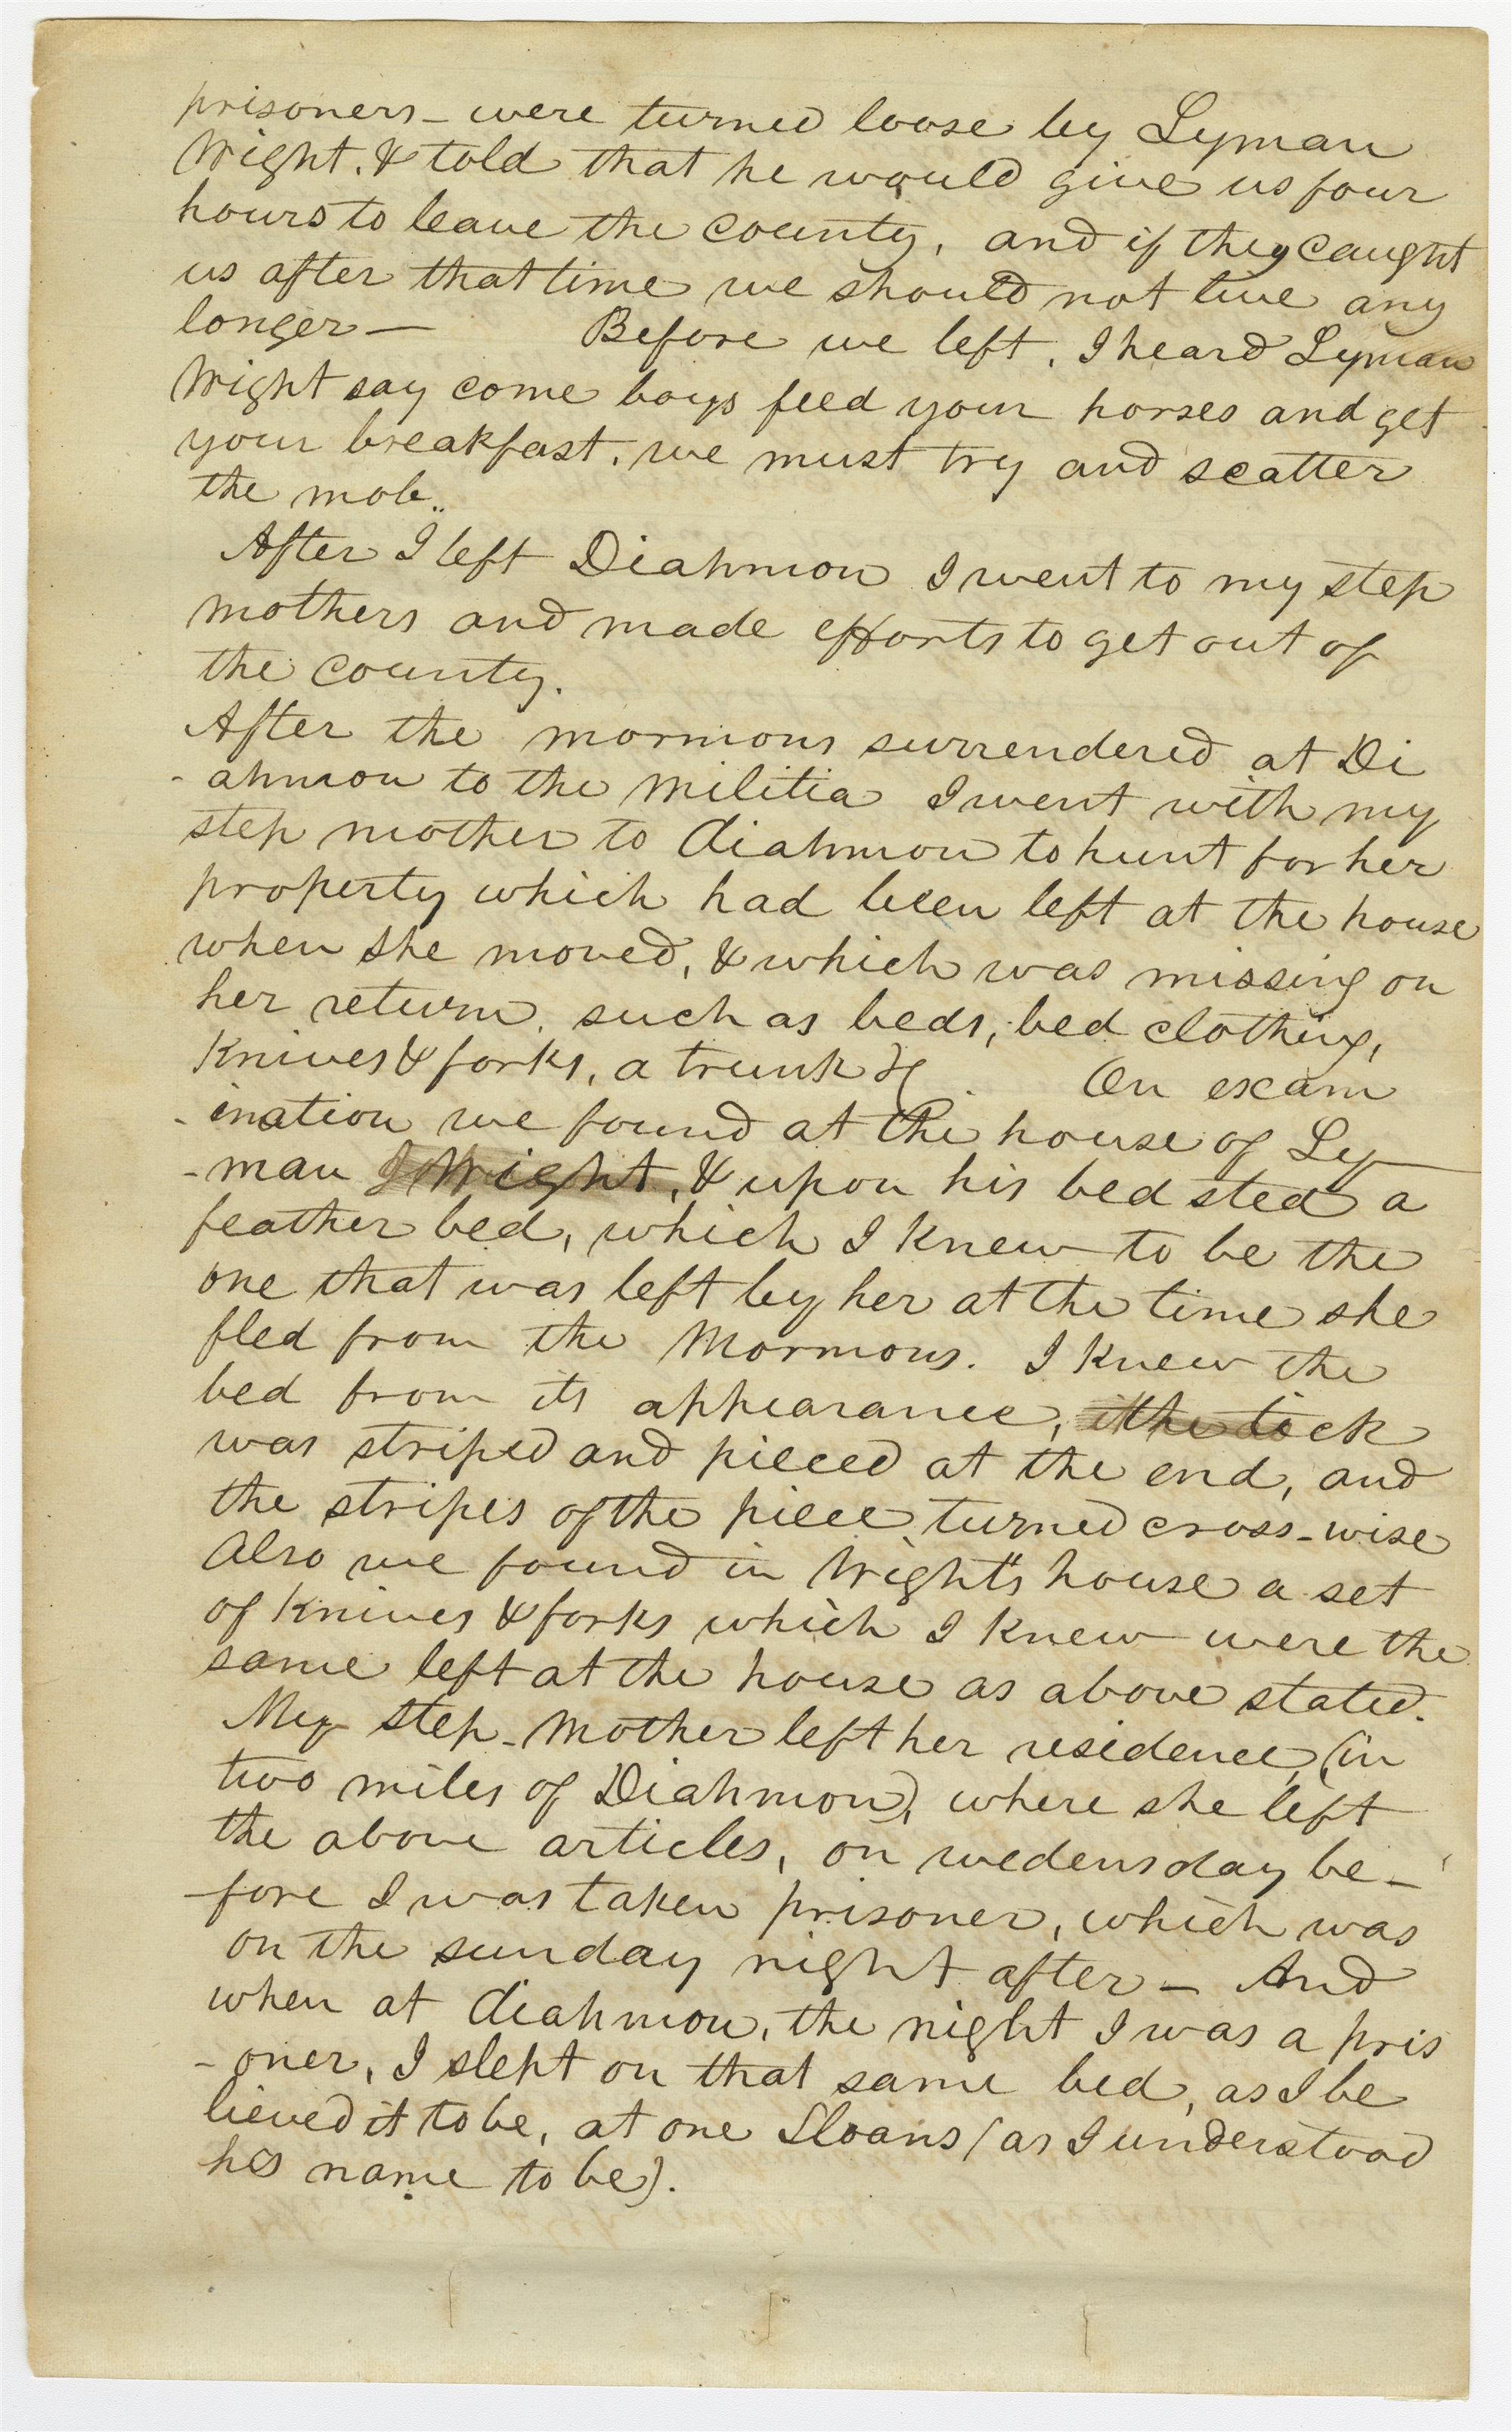 prisoners – were turned loose by Lyman
Wright. & told that he would give us four
hours to leave the county, and if they caught
us after that time we should not live any
longer — Before we left, I heard Lyman
Wright say come boys feed your horses and get
your breakfast, we must try and scatter
the mob..
After I left Diahmon I went to my step
mothers and made efforts to get out of
the county.
After the mormons surrendered at Di
-ahmon to the militia I went with my
step mother to diahmon to hunt for her
property which had been left at the house
when she moved, & which was missing on
her return, such as beds, bed clothing,
Knives & forks, a trunk &c. On exam
-ination we found at the house of Ly
-man Wright, & upon his bed sted a
feather bed, which I knew to be the
one that was left by her at the time she
fled from the Mormons. I knew the
bed from its appearance, the tick
was striped and pieced at the end, and
the stripes of the piece turned cross-wise
Also we found in Wright's house a set
of Knives & forks which I knew were the
same left at the house as above stated.
My step-mother left her residence, (in
two miles of Diahmon), where she left
the above articles, on wedensday be-
-fore I was taken prisoner, which was
on the sunday night after – And
when at diahmon, the night I was a pris
-oner, I slept on that same bed, as I be
lieved it to be, at one Sloans (as I understood
his name to be).